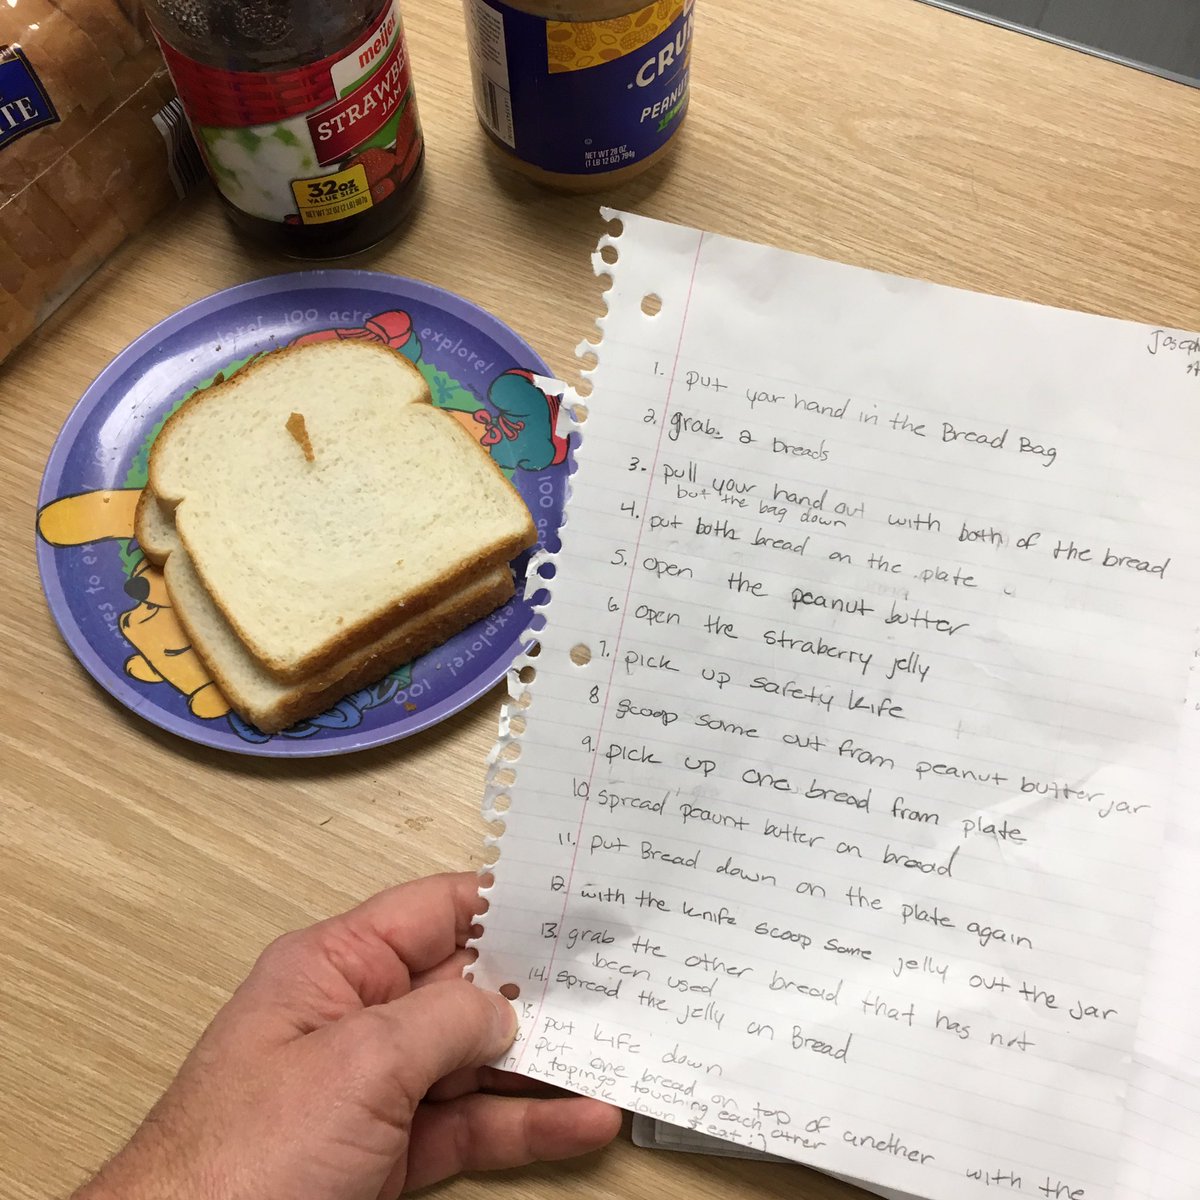 ITE
meijer
STRAWBE
JAM
32oz
VALUE SIZE
NET WT 32 OZ (2 LB) 907g
CRUN
PEANUT
NET WT 28 OZ
(1 LB 12 OZ) 794g
explore! 100 acre explore!
100
explore! 100
Joseph
1. put your hand in the Bread Bag
2. grab 2 breads
3. pull your hand out with both of the bread
but the bag down
4. put both bread on the plate
5. open the peanut butter
6. open the straberry jelly
7. pick up safety kife
8 scoop some out from peanut butter jar
9. pick up one bread from plate
10. spread peaunt botter on bread
11. put Bread down on the plate again
12. with the knife scoop some jelly out the jar
13. grab the other bread that has not
been used
14. spread the jelly on Bread
15. put kife down
16. put one bread on top of another with the
topings touching each other
17. put mask down & eat :)